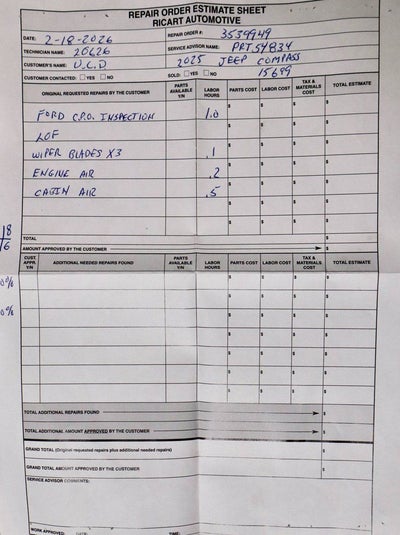 REPAIR ORDER ESTIMATE SHEET
RICART AUTOMOTIVE
DATE: 2-18-2026 REPAIR ORDER #: 3559949
TECHNICIAN NAME: 20626 SERVICE ADVISOR NAME: PRT.54834
CUSTOMER'S NAME: U.C.D 2025 JEEP COMPASS
CUSTOMER CONTACTED: YES NO SOLD: YES NO 15689
ORIGINAL REQUESTED REPAIRS BY THE CUSTOMER PARTS AVAILABLE Y/N LABOR HOURS PARTS COST LABOR COST TAX & MATERIALS COST TOTAL ESTIMATE
FORD C.P.O. INSPECTION 1.0 $ $ $ $
LOF $ $ $ $
WIPER BLADES X3 .1 $ $ $ $
ENGINE AIR .2 $ $ $ $
CABIN AIR .5 $ $ $ $
$ $ $ $
TOTAL $
AMOUNT APPROVED BY THE CUSTOMER $
CUST. APPR. Y/N ADDITIONAL NEEDED REPAIRS FOUND PARTS AVAILABLE Y/N LABOR HOURS PARTS COST LABOR COST TAX & MATERIALS COST TOTAL ESTIMATE
$ $ $ $
$ $ $ $
$ $ $ $
$ $ $ $
$ $ $ $
$ $ $ $
$ $ $ $
TOTAL ADDITIONAL REPAIRS FOUND $
TOTAL ADDITIONAL AMOUNT APPROVED BY THE CUSTOMER $
GRAND TOTAL (Original requested repairs plus additional needed repairs) $
GRAND TOTAL AMOUNT APPROVED BY THE CUSTOMER $
SERVICE ADVISOR COMMENTS:
WORK APPROVED: DATE: TIME: